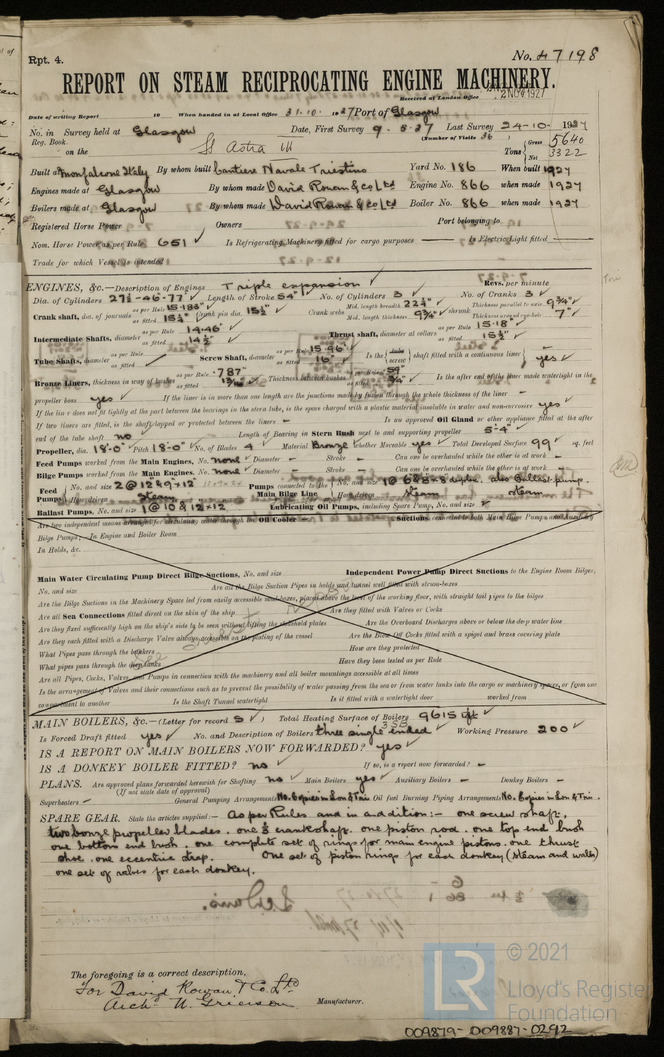 Rpt. 4.
No. 47198
REPORT ON STEAM RECIPROCATING ENGINE MACHINERY.
Received at London Office 2 NOV 1927
Date of writing Report 19 When handed in at Local Office 31.10.1927 Port of Glasgow
No. in Survey held at Glasgow Date, First Survey 9.5.27 Last Survey 24-10-1927
Reg. Book. (Number of Visits 36)
on the Astra III Tons Gross 5640
Net 3322
Built at Monfalcone Italy By whom built Cantiere Navale Triestino Yard No. 186 When built 1927
Engines made at Glasgow By whom made David Rowan & Co Ltd Engine No. 866 when made 1927
Boilers made at Glasgow By whom made David Rowan & Co Ltd Boiler No. 866 when made 1927
Registered Horse Power Owners Port belonging to
Nom. Horse Power as per Rule 651 Is Refrigerating Machinery fitted for cargo purposes — Is Electric Light fitted —
Trade for which Vessel is intended
ENGINES, &c.—Description of Engines Triple expansion Revs. per minute
Dia. of Cylinders 27½-46-77 Length of Stroke 54 No. of Cylinders 3 No. of Cranks 3
Crank shaft, dia. of journals as per Rule 15.183 as fitted 15½ Crank pin dia. 15½ Crank webs Mid. length breadth 22¾ Mid. length thickness 9¾ shrunk Thickness parallel to axis 9¾ Thickness around eye-hole 7
Intermediate Shafts, diameter as per Rule 14.46 as fitted 14½ Thrust shaft, diameter at collars as per Rule 15.18 as fitted 15½
Tube Shafts, diameter as per Rule as fitted Screw Shaft, diameter as per Rule 15.96 as fitted 16 Is the screw shaft fitted with a continuous liner yes
Bronze Liners, thickness in way of bushes as per Rule .787 as fitted Thickness between bushes as per Rule as fitted Is the after end of the liner made watertight in the
propeller boss yes If the liner is in more than one length are the junctions made by fusion through the whole thickness of the liner —
If the liner does not fit tightly at the part between the bearings in the stern tube, is the space charged with a plastic material insoluble in water and non-corrosive yes
If two liners are fitted, is the shaft lapped or protected between the liners — Is an approved Oil Gland or other appliance fitted at the after
end of the tube shaft no Length of Bearing in Stern Bush next to and supporting propeller 5'-4"
Propeller, dia. 18'-0" Pitch 18'-0" No. of Blades 4 Material Bronze whether Moveable yes Total Developed Surface 99 sq. feet
Feed Pumps worked from the Main Engines, No. none Diameter — Stroke — Can one be overhauled while the other is at work —
Bilge Pumps worked from the Main Engines, No. none Diameter — Stroke — Can one be overhauled while the other is at work —
Feed Pumps No. and size 2 @ 12 & 9 × 12 Pumps connected to the Main Bilge Line No. and size 1 @ 6 & 8 × 8 duplex. also Ballast pump.
How driven steam How driven steam steam
Ballast Pumps, No. and size 1 @ 10 & 12 × 12 Lubricating Oil Pumps, including Spare Pump, No. and size —
Are two independent means arranged for circulating water through the Oil Cooler Suctions connected to both Main Bilge Pumps and
Bilge Pumps; In Engine and Boiler Room
In Holds, &c.
Main Water Circulating Pump Direct Bilge Suctions, No. and size Independent Power Pump Direct Suctions to the Engine Room Bilges,
No. and size Are all the Bilge Suction Pipes in holds and tunnel well fitted with strum-boxes
Are the Bilge Suctions in the Machinery Space led from easily accessible mud boxes, placed above the level of the working floor, with straight tail pipes to the bilges
Are all Sea Connections fitted direct on the skin of the ship Are they fitted with Valves or Cocks
Are they fixed sufficiently high on the ship's side to be seen without lifting the stokehold plates Are the Overboard Discharges above or below the deep water line
Are they each fitted with a Discharge Valve always accessible on the plating of the vessel Are the Blow Off Cocks fitted with a spigot and brass covering plate
What Pipes pass through the bunkers How are they protected
What pipes pass through the deep tanks Have they been tested as per Rule
Are all Pipes, Cocks, Valves, and Pumps in connection with the machinery and all boiler mountings accessible at all times
Is the arrangement of Valves and their connections such as to prevent the possibility of water passing from the sea or from water tanks into the cargo or machinery space, or from one
compartment to another Is the Shaft Tunnel watertight Is it fitted with a watertight door worked from
MAIN BOILERS, &c.—(Letter for record S) Total Heating Surface of Boilers 9615 sq ft
Is Forced Draft fitted yes No. and Description of Boilers three single ended 3 SB Working Pressure 200
IS A REPORT ON MAIN BOILERS NOW FORWARDED? yes
IS A DONKEY BOILER FITTED? no If so, is a report now forwarded? —
PLANS. Are approved plans forwarded herewith for Shafting no Main Boilers yes Auxiliary Boilers — Donkey Boilers —
(If not state date of approval)
Superheaters — General Pumping Arrangements No. Copies in Lon & Trie. Oil fuel Burning Piping Arrangements No. Copies in Lon & Trie.
SPARE GEAR. State the articles supplied:— As per Rules and in addition:— one screw shaft,
two bronze propeller blades. one ⅓ crankshaft. one piston rod. one top end bush
one bottom end bush. one complete set of rings for main engine pistons. one thrust
shoe. one eccentric strap. One set of piston rings for each donkey (steam and water)
one set of valves for each donkey.
The foregoing is a correct description,
For David Rowan & Co. Ltd
Archd. W. Grierson Manufacturer.
LR © 2021
Lloyd's Register
Foundation
009879-009887-0292